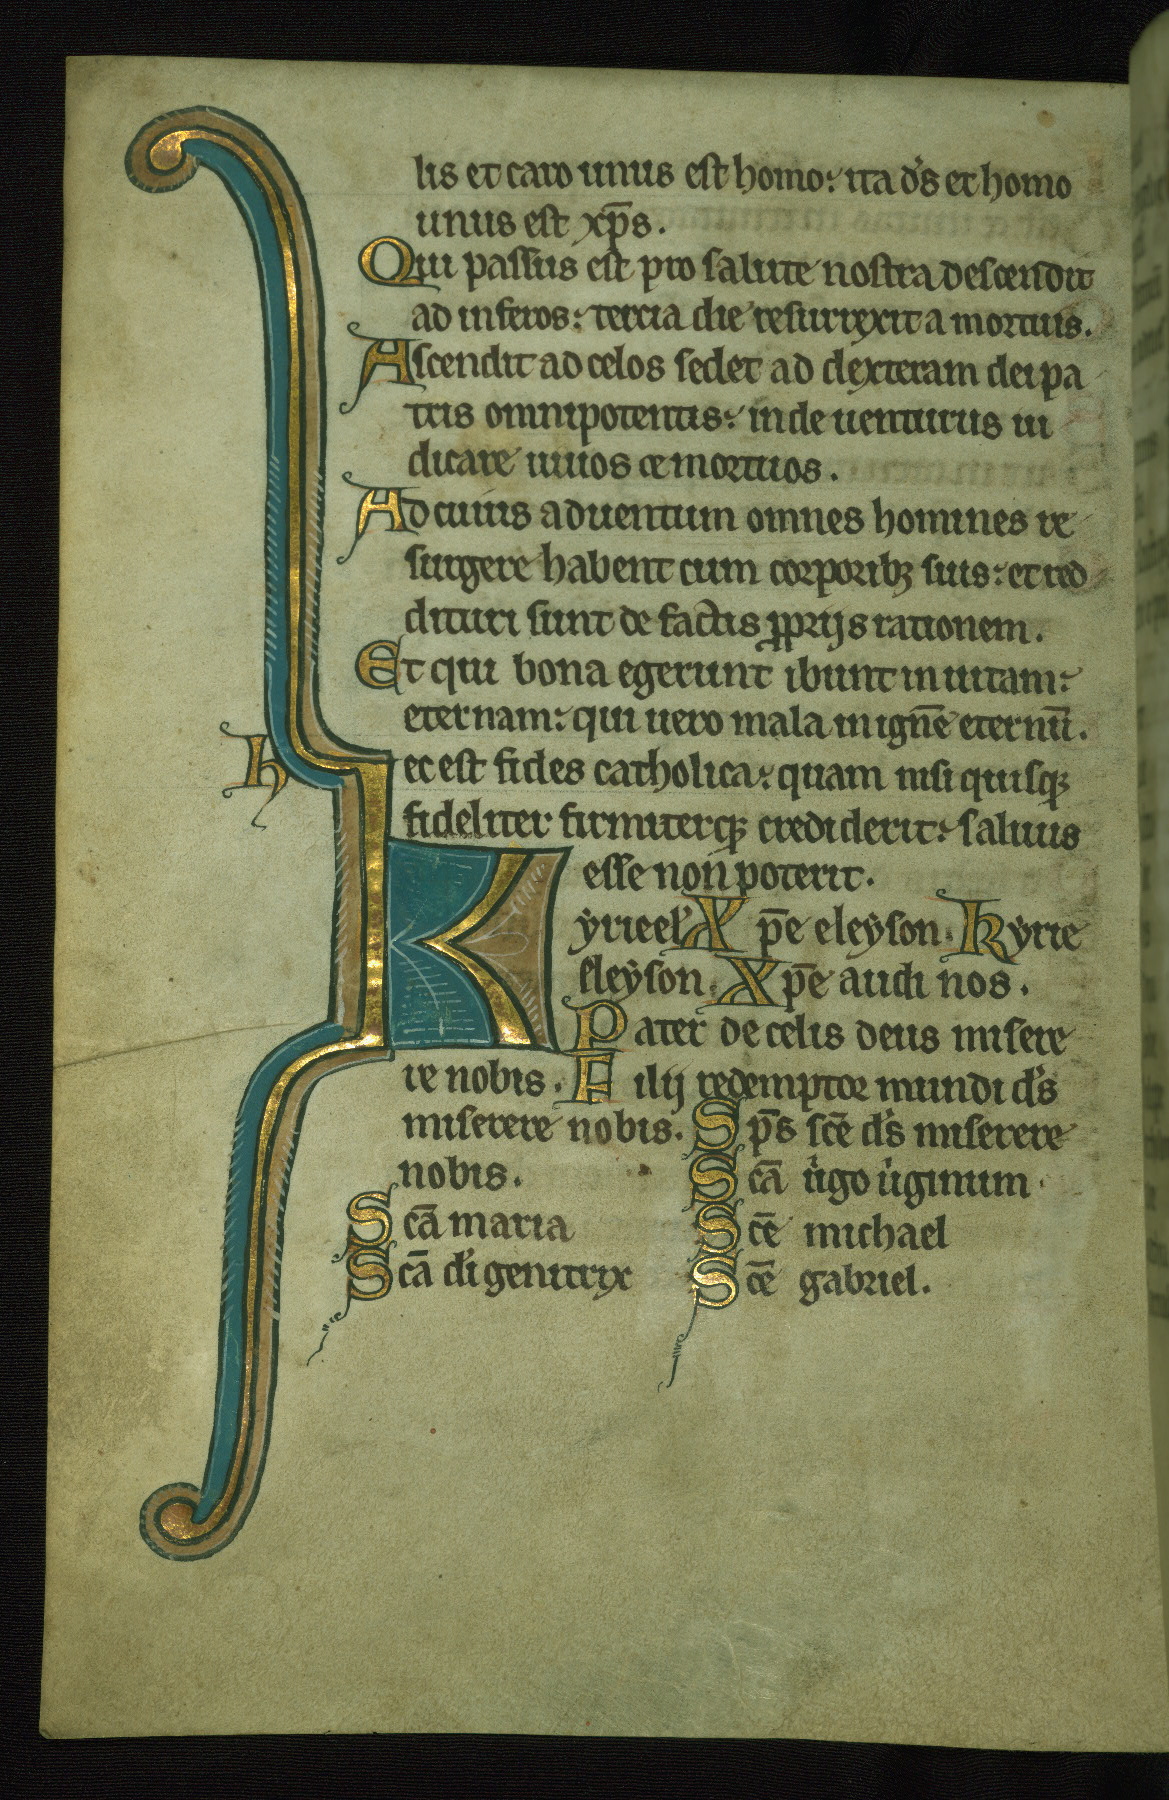 lis et caro unus est homo: ita d's et homo
unus est xp̅s.
Qui passus est pro salute nostra descendit
ad inferos: tercia die resurrexit a mortuis.
Ascendit ad celos sedet ad dexteram dei pa
tris omnipotentis: inde uenturus iu
dicare uiuos et mortuos.
Ad cuius aduentum omnes homines re
surgere habent cum corporibꝫ suis: et red
dituri sunt de factis ꝓprijs rationem.
Et qui bona egerunt ibunt in uitam:
eternam: qui uero mala in igne̅ eternu̅.
hec est fides catholica: quam nisi quisqꝫ
fideliter firmiterqꝫ crediderit: saluus
esse non poterit.
Kẏrieel' Xp̅e eleẏson. Kẏrie
eleẏson. Xp̅e audi nos.
Pater de celis deus misere
re nobis. Filij redemptor mundi d's
miserere nobis. Sp̅s sce̅ d's miserere
nobis. Sca̅ uͥgo uͥginum
Sca̅ maria Sce̅ michael
Sca̅ di̅ genitrix Sce̅ gabriel.